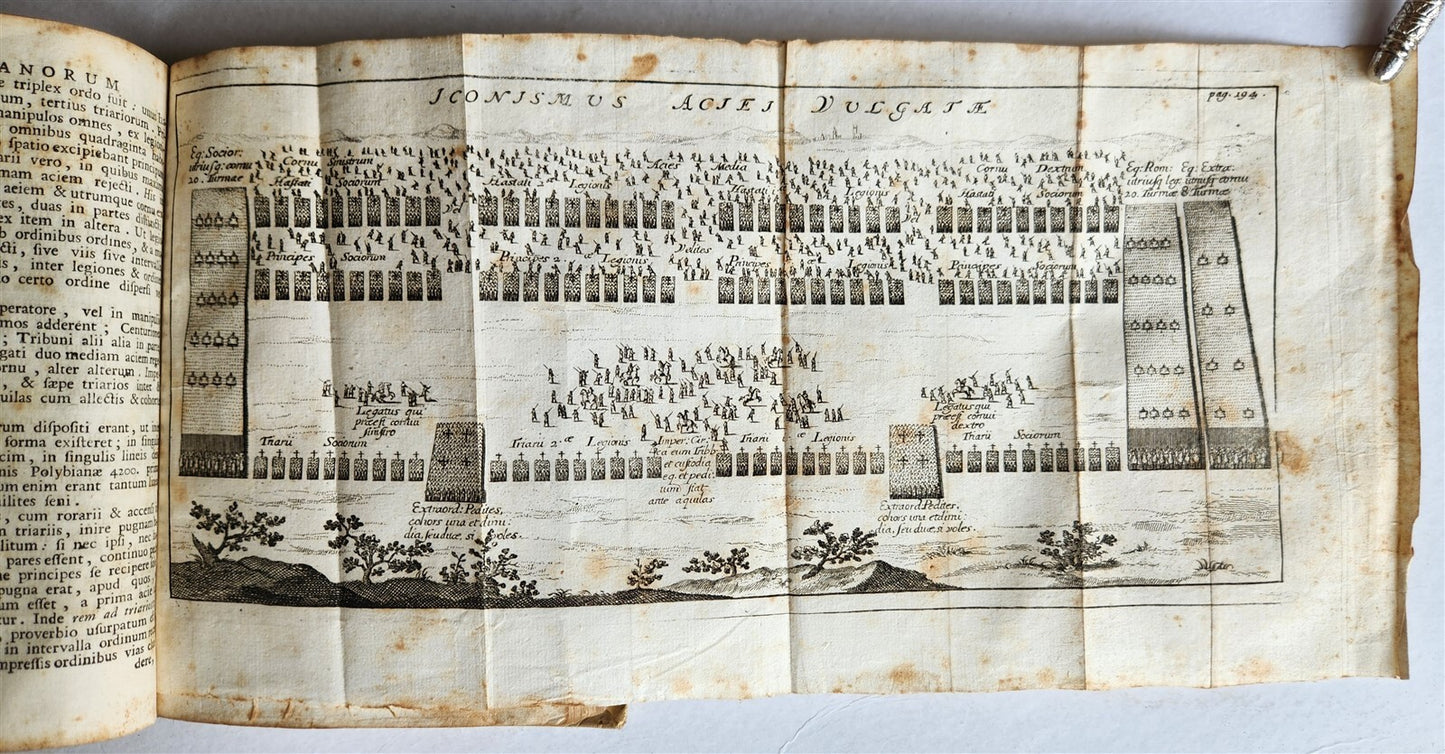 ANORUM
e triplex ordo fuit: unus
um, tertius triariorum.
manipulos omnes, ex legion
omnibus quadraginta
spatio excipiebant principum
arii vero, in quibus
mam aciem rejecti. His
aciem & utrumque cornu
es, duas in partes
ex item in altera. Ut
b ordinibus ordines, &
ecti, sive viis sive interval
is, inter legiones &
to certo ordine dispersi
peratore, vel in manipul
mos adderent; Centurion
; Tribuni alii alia in parte
gati duo mediam aciem
ornu, alter alterum.
, & sæpe triarios inter
uilas cum allectis & cohor
rum dispositi erant, ut
forma existeret; in singul
cim, in singulis lineis
nis Polybianæ 4200.
um enim erant tantum
ilites seni.
, cum rorarii &
n triariis, inire pugnam
litum: si nec ipsi, nec
pares essent, continuo
ne principes se recipere
pugna erat, apud quos
um esset, a prima acie
tur. Inde rem ad triarios
, proverbio usurpatum
in intervalla ordinum
mpressis ordinibus vias
dere,
ICONISMUS ACIEI VULGATÆ
pag. 194.
Eq: Socior:
utriusq: cornu
20. Turmae
Cornu Sinistrum
Hastati Sociorum
Acies Media
Hastati 2.æ Legionis
Hastati Legionis
Cornu Dextrum
Hastati Sociorum
Eq: Rom:
utriusq leg:
20. Turmæ
Eq: Extra.
unius cornu
8 Turmæ
Vel
Velites
Principes Sociorum
Principes 2.æ Legionis
Principes Legionis
Principes Sociorum
Legatus qui
præest cornui
sinistro
Legatus qui
præest cornui
dextro
Triarii Sociorum
Triarii 2.æ Legionis
Imper: Cir:
ca eum Tribb
et custodia
eq. et pedi:
tum stat
ante aquilas
Triarii Legionis
Triarii Sociorum
Extraord: Pedites,
cohors una et dimi:
dia, seu duæ si voles.
Extraord: Pedites,
cohors una et dimi:
dia, seu duæ si voles.